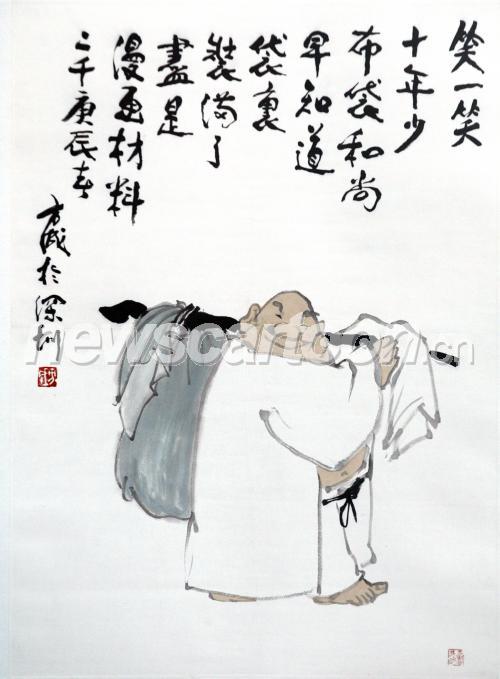 笑一笑
十年少
布袋和尚
早知道
袋裏
裝滿了
盡是
漫画材料
二千庚辰春
方成於深圳
newscartoon.cn